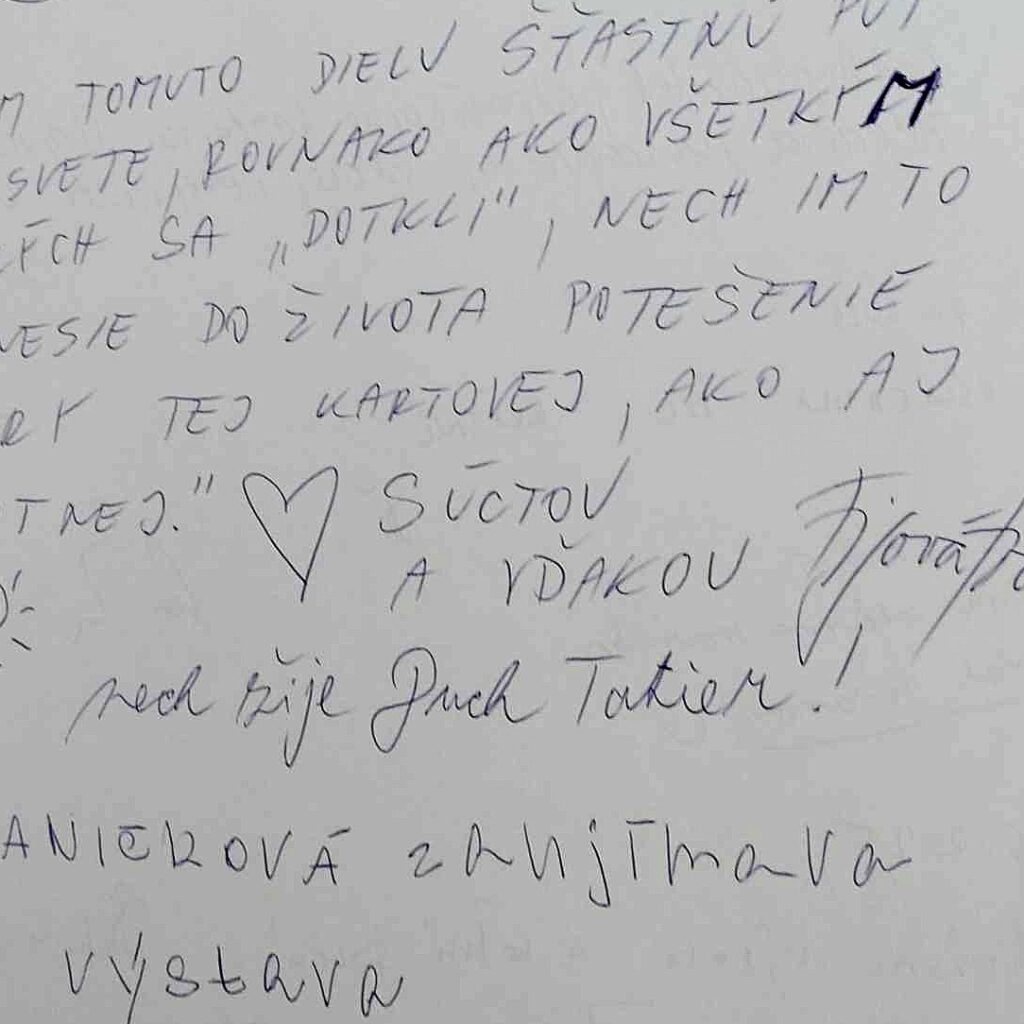 M TOMUTO DIELU ŠŤASTNÚ PÚŤ
SVETE, ROVNAKO AKO VŠETKÝM
ÝCH SA „DOTKLI", NECH IM TO
NESIE DO ŽIVOTA POTEŠENIE
RY TEJ KARTOVEJ, AKO AJ
TNEJ." ♡ SÚCTOU
A VĎAKOU
nech žije Duch Tatier!
ANIČKOVÁ zaujímava
výstava